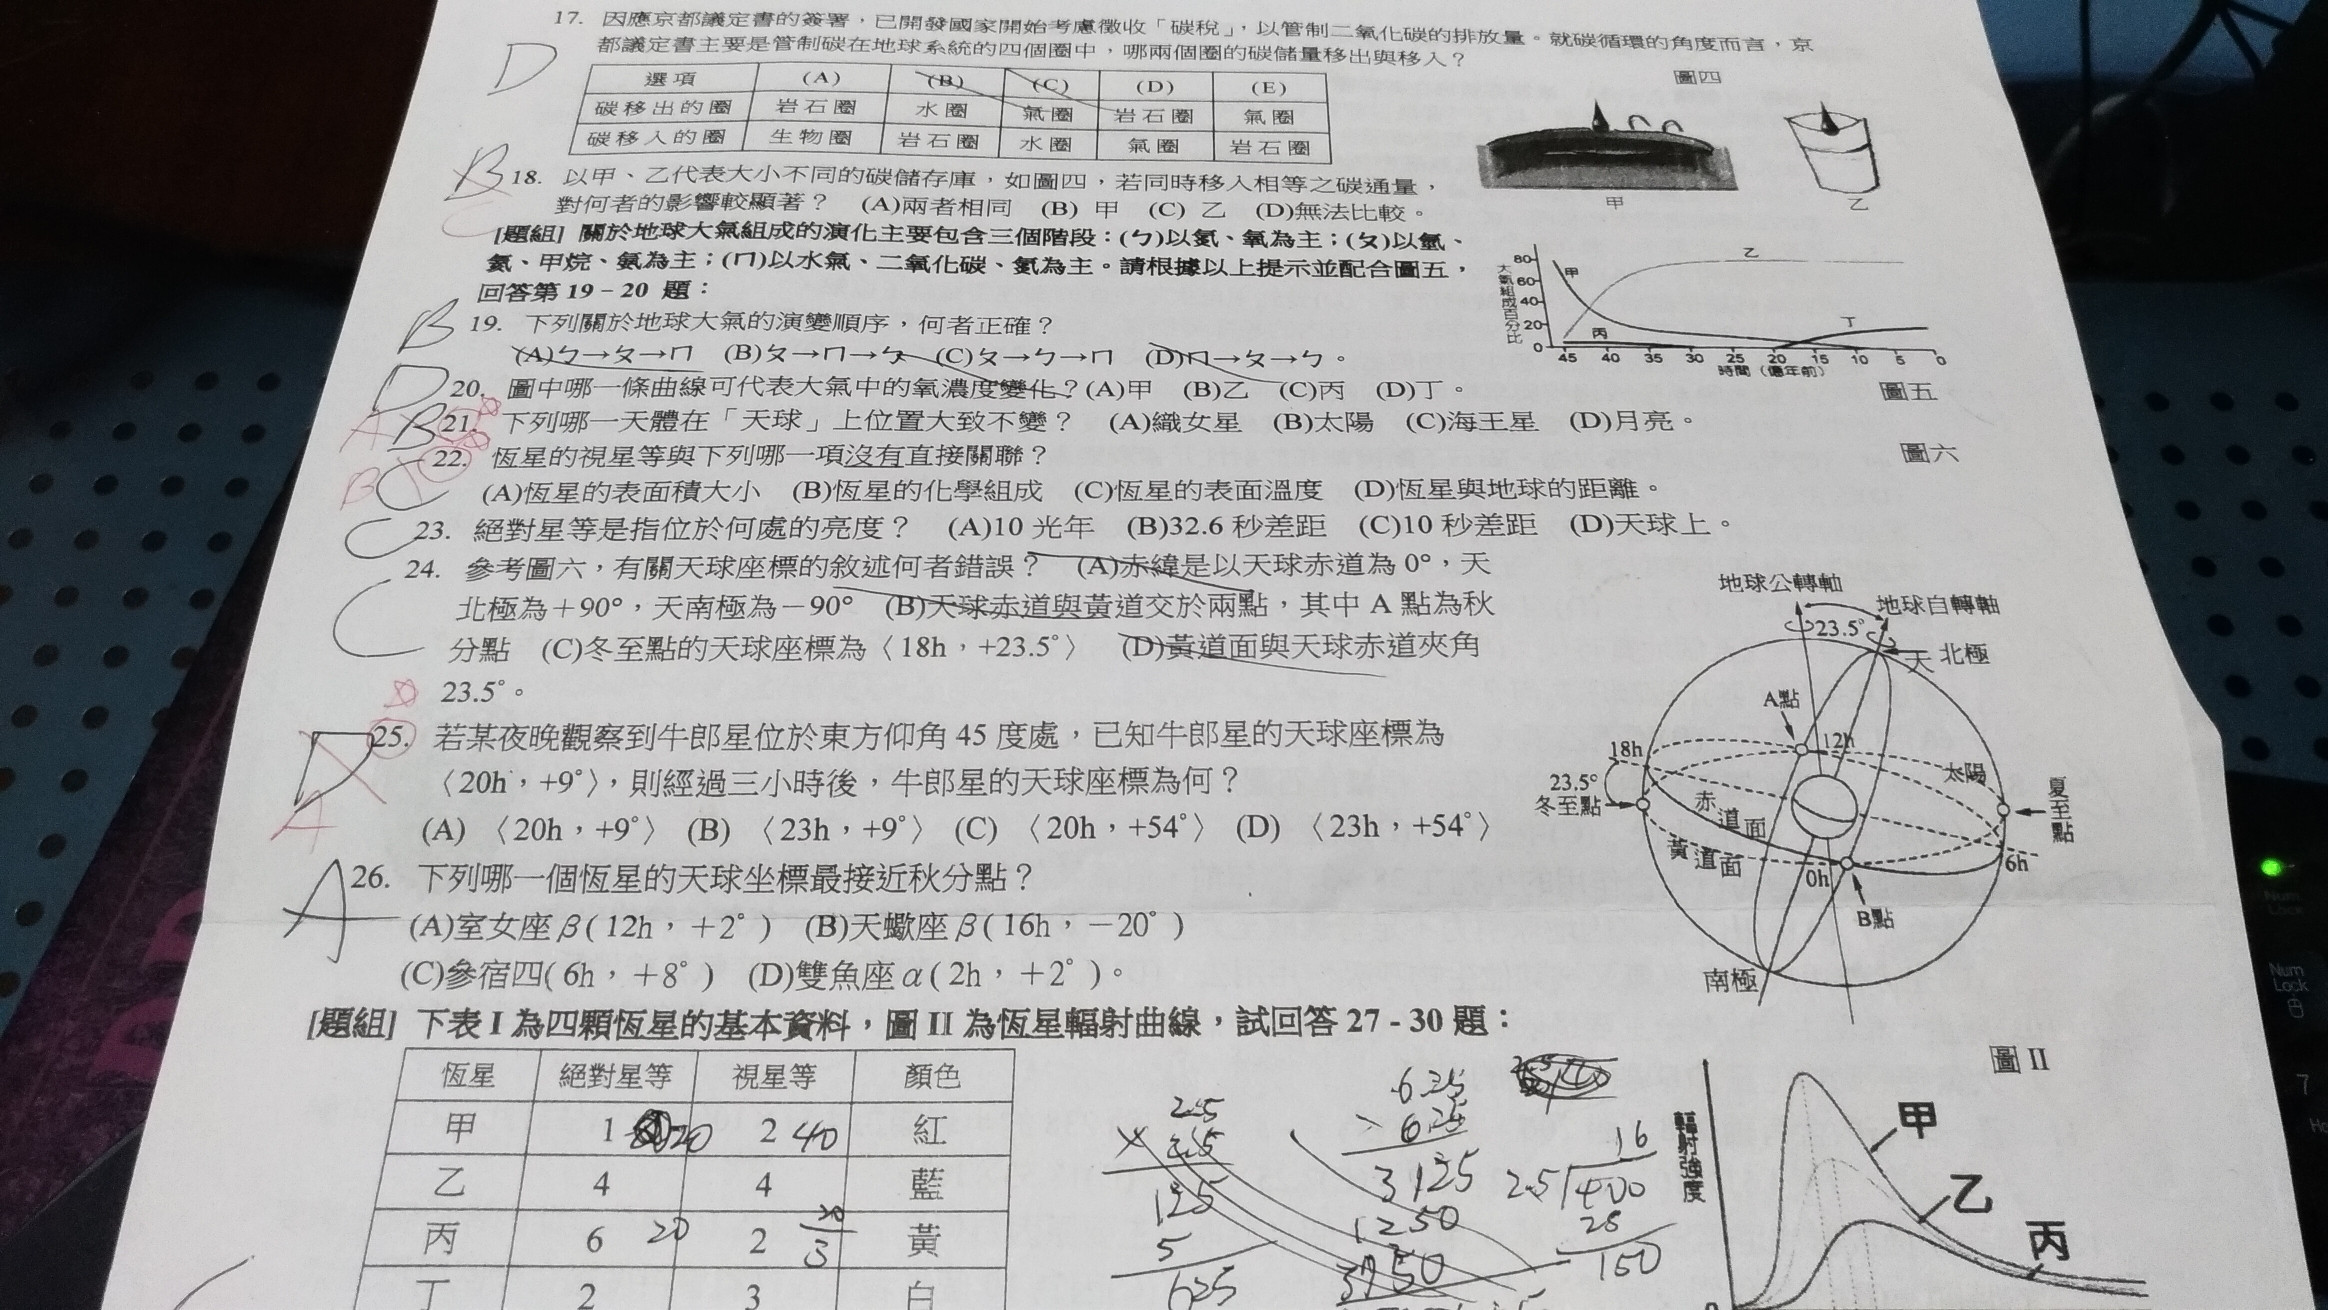 17. 因應京都議定書的簽署，已開發國家開始考慮徵收「碳稅」，以管制二氧化碳的排放量。就碳循環的角度而言，京
都議定書主要是管制碳在地球系統的四個圈中，哪兩個圈的碳儲量移出與移入？
D
選項 (A) (B) (C) (D) (E)
碳移出的圈 岩石圈 水圈 氣圈 岩石圈 氣圈
碳移入的圈 生物圈 岩石圈 水圈 氣圈 岩石圈
圖四
甲 乙
B
C
18. 以甲、乙代表大小不同的碳儲存庫，如圖四，若同時移入相等之碳通量，
對何者的影響較顯著？ (A)兩者相同 (B) 甲 (C) 乙 (D)無法比較。
[題組] 關於地球大氣組成的演化主要包含三個階段：(ㄅ)以氮、氧為主；(ㄆ)以氫、
氦、甲烷、氨為主；(ㄇ)以水氣、二氧化碳、氮為主。請根據以上提示並配合圖五，
回答第 19－20 題：
B 19. 下列關於地球大氣的演變順序，何者正確？
(A)ㄅ→ㄆ→ㄇ (B)ㄆ→ㄇ→ㄅ (C)ㄆ→ㄅ→ㄇ (D)ㄇ→ㄆ→ㄅ。
D 20. 圖中哪一條曲線可代表大氣中的氧濃度變化？(A)甲 (B)乙 (C)丙 (D)丁。
大氣組成百分比
80
60
40
20
0
甲 乙 丙 丁
45 40 35 30 25 20 15 10 5 0
時間（億年前）
圖五
A B 21. 下列哪一天體在「天球」上位置大致不變？ (A)織女星 (B)太陽 (C)海王星 (D)月亮。
B C 22. 恆星的視星等與下列哪一項沒有直接關聯？
圖六
(A)恆星的表面積大小 (B)恆星的化學組成 (C)恆星的表面溫度 (D)恆星與地球的距離。
C 23. 絕對星等是指位於何處的亮度？ (A)10 光年 (B)32.6 秒差距 (C)10 秒差距 (D)天球上。
C 24. 參考圖六，有關天球座標的敘述何者錯誤？ (A)赤緯是以天球赤道為 0°，天
北極為＋90°，天南極為－90° (B)天球赤道與黃道交於兩點，其中 A 點為秋
分點 (C)冬至點的天球座標為〈18h，+23.5°〉 (D)黃道面與天球赤道夾角
23.5°。
地球公轉軸
地球自轉軸
23.5°
天 北極
A點
18h
12h
太陽
23.5°
冬至點
夏至點
赤道面
黃道面
0h
6h
B點
南極
D A 25. 若某夜晚觀察到牛郎星位於東方仰角 45 度處，已知牛郎星的天球座標為
〈20h，+9°〉，則經過三小時後，牛郎星的天球座標為何？
(A) 〈20h，+9°〉 (B) 〈23h，+9°〉 (C) 〈20h，+54°〉 (D) 〈23h，+54°〉
A 26. 下列哪一個恆星的天球坐標最接近秋分點？
(A)室女座β( 12h，＋2° ) (B)天蠍座β( 16h，－20° )
(C)參宿四( 6h，＋8° ) (D)雙魚座α( 2h，＋2° )。
[題組] 下表 I 為四顆恆星的基本資料，圖 II 為恆星輻射曲線，試回答 27 - 30 題：
恆星 絕對星等 視星等 顏色
甲 1 20 2 40 紅
乙 4 4 藍
丙 6 20 2 20/3 黃
丁 2 3 白
2.5
× 2.5
125
5
625
6.25
6.25
3125
1250
3750
16
2.5 400
25
150
圖 II
輻射強度
甲
乙
丙
0